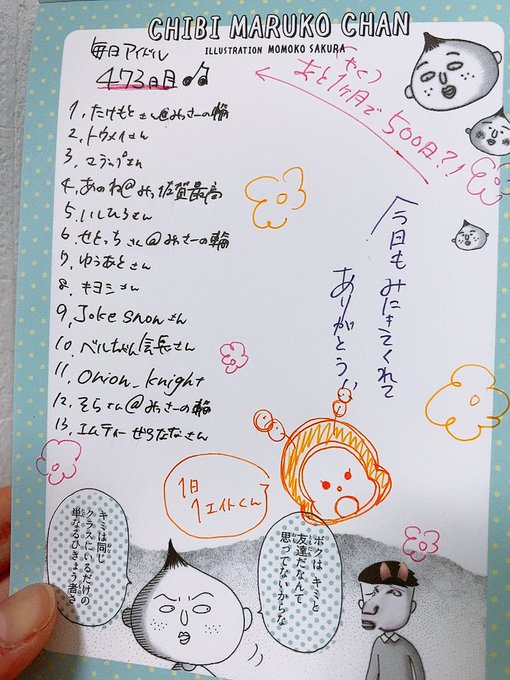 CHIBI MARUKO CHAN
ILLUSTRATION MOMOKO SAKURA
毎日アイドル
473日目
(やく)
あと1ヶ月で500日?!
1, たけもとさん@みっさーの輪
2, トウメイさん
3,
4, あのね@みっ佐賀最高
5, いしひろさん
6, せとっちさん@みっさーの輪
7, ゆうあとさん
8, キヨミさん
9, Joke snowさん
10, ベルちゃん会長さん
11, Onion_knight
12, そらさん@みっさーの輪
13, エムティーぜろななさん
今日もみにきてくれて
ありがとう!!
1日
1エイトくん
ボクはキミと
友達だなんて
思ってないからな
キミは同じ
クラスにいるだけの
単なるひきょう者さ